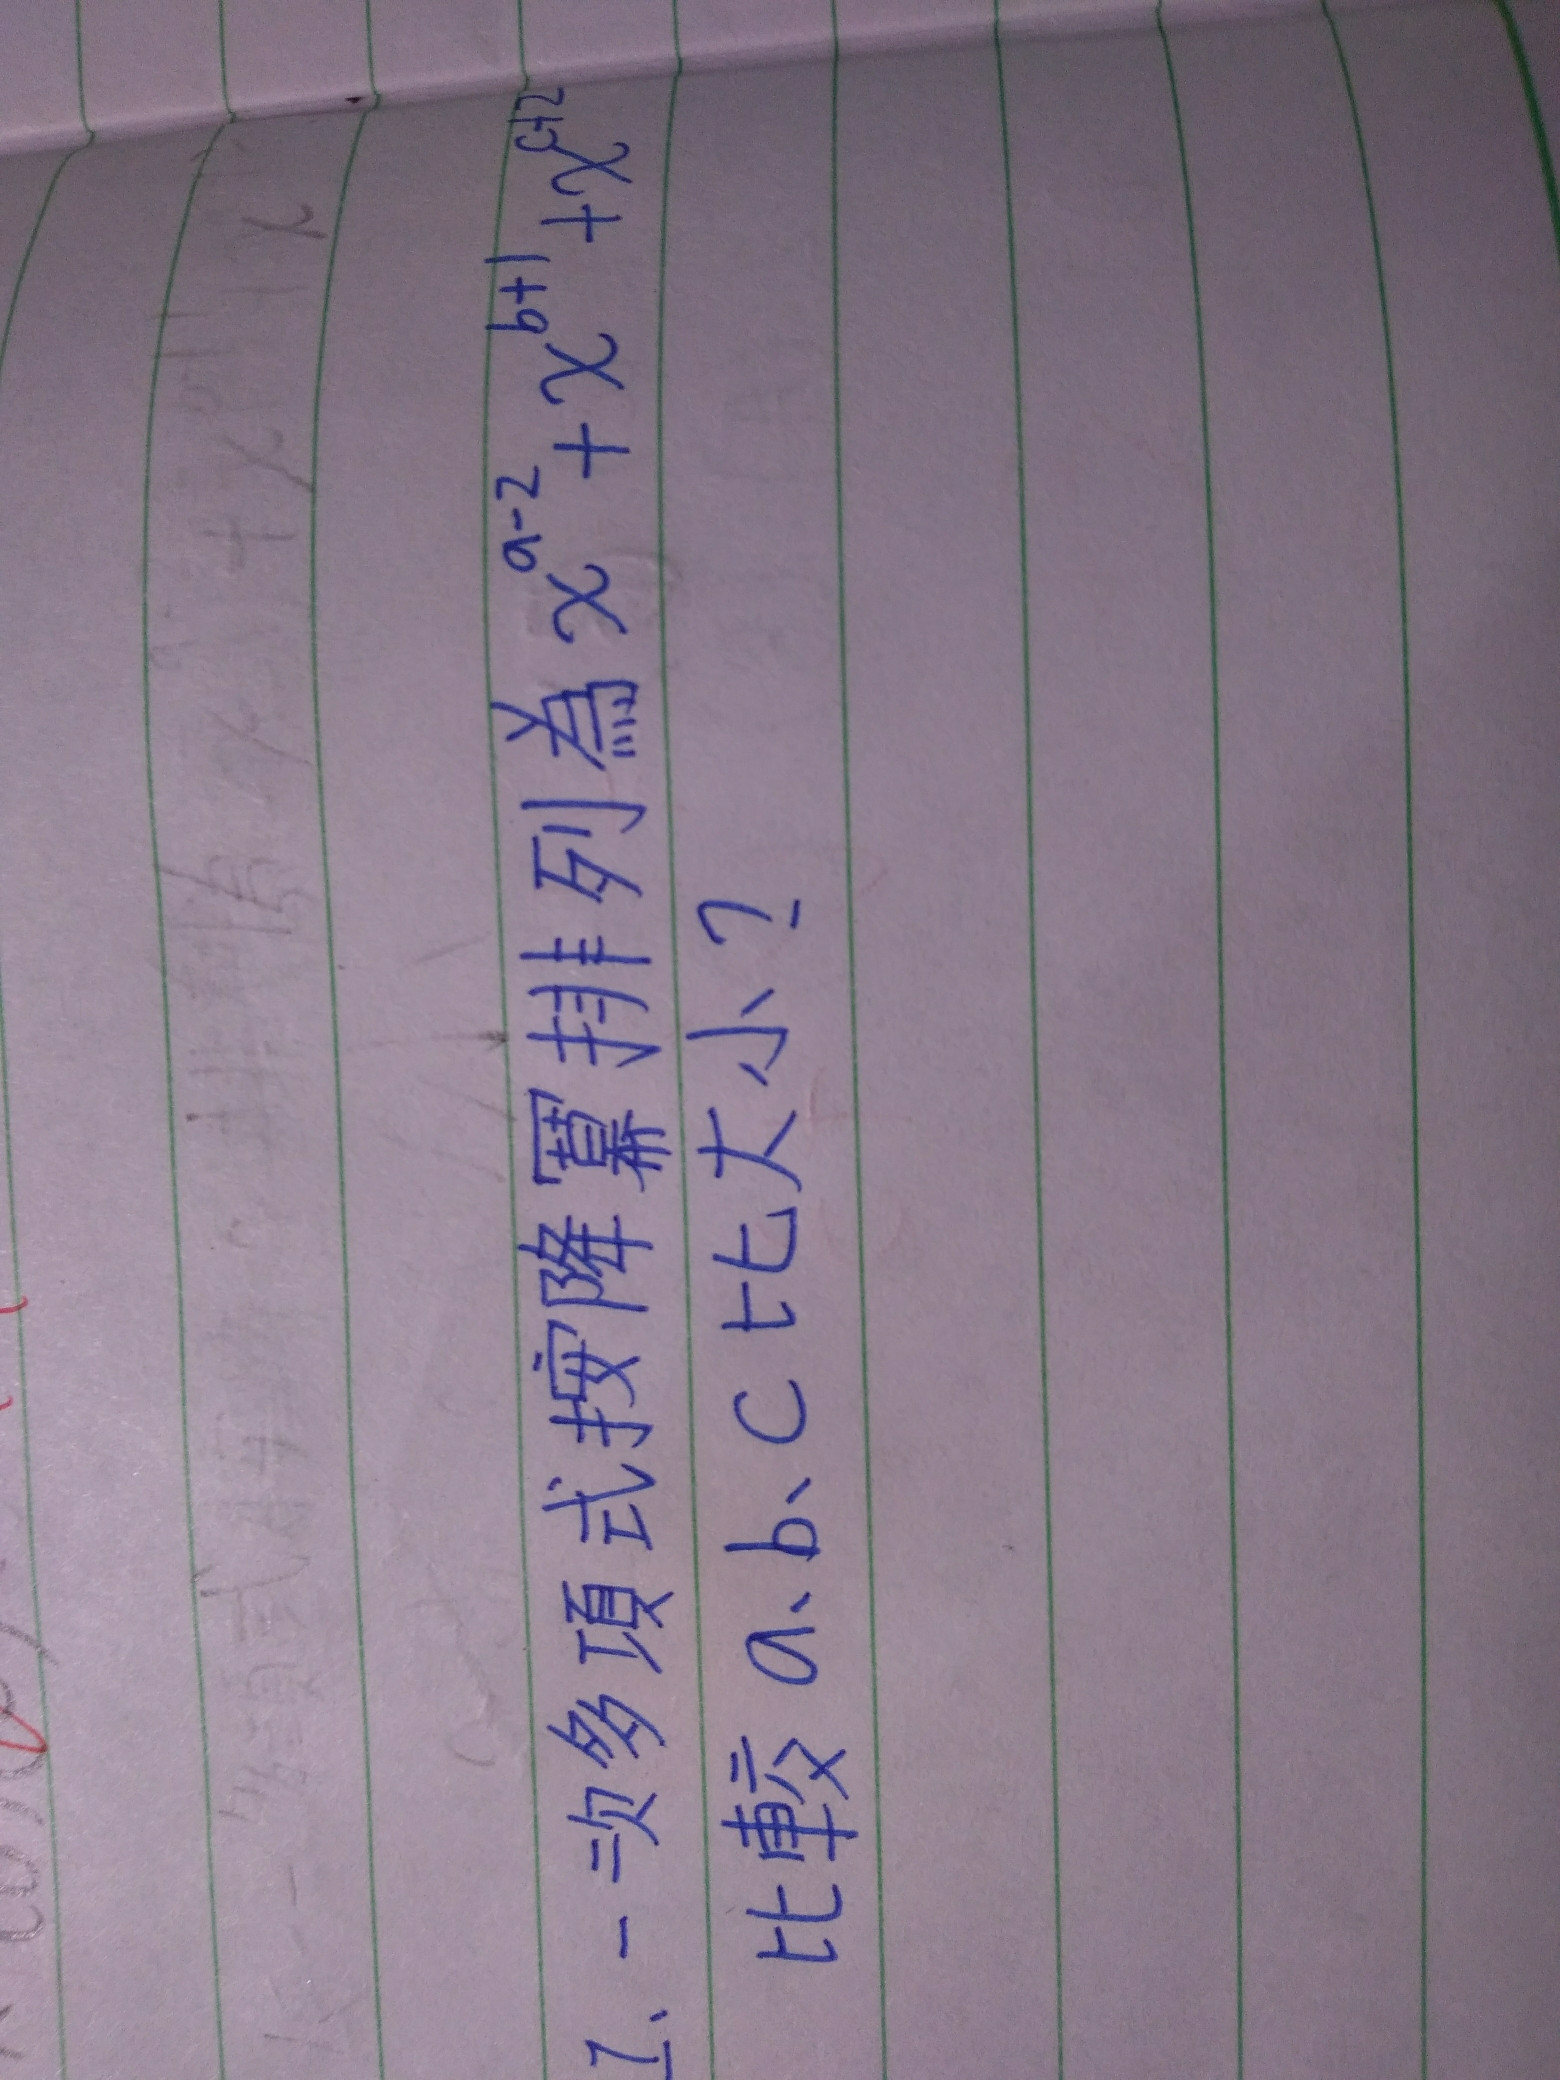 1、一次多項式按降冪排列為 x^{a-2} + x^{b+1} + x^{c+2}
比較 a、b、c 比大小?